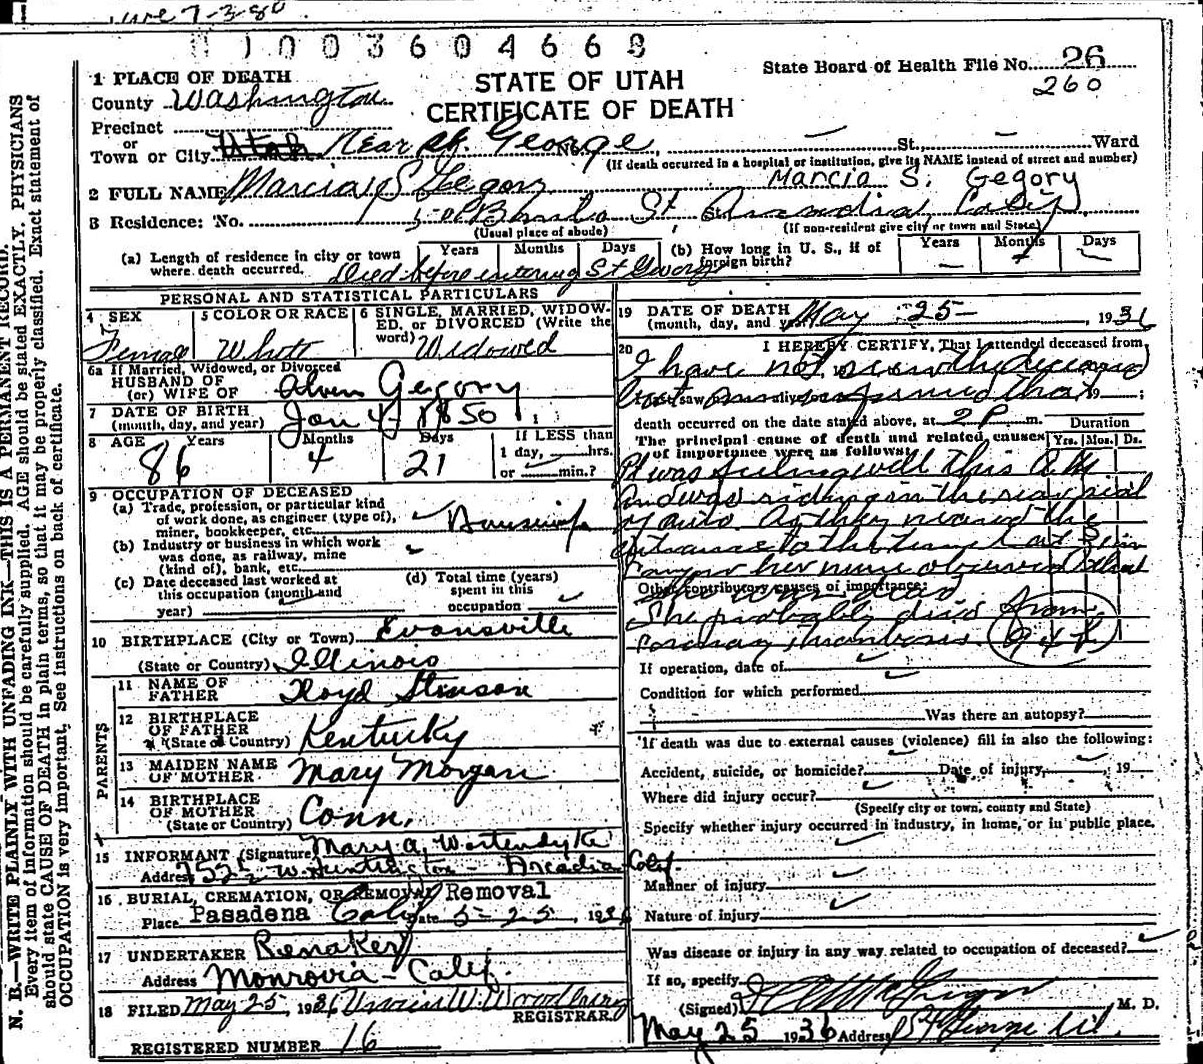 June 7-3-80
0100360466
STATE OF UTAH
CERTIFICATE OF DEATH
State Board of Health File No. 26
260
1 PLACE OF DEATH
County Washington
Precinct
or
Town or City Utah Near St. George No. St., Ward
(If death occurred in a hospital or institution, give its NAME instead of street and number)
2 FULL NAME Marcia S Gegory Marcia S. Gegory
3 Residence: No. St., Arcadia, Calif
(Usual place of abode) (If non-resident give city or town and State)
(a) Length of residence in city or town where death occurred. Years Months Days (b) How long in U. S., if of foreign birth? Years Months Days
Died before entering St George
PERSONAL AND STATISTICAL PARTICULARS
4 SEX Female
5 COLOR OR RACE White
6 SINGLE, MARRIED, WIDOWED, or DIVORCED (Write the word) Widowed
6a If Married, Widowed, or Divorced
HUSBAND OF
(or) WIFE OF Alvin Gegory
7 DATE OF BIRTH
(month, day, and year) Jan 4, 1850
8 AGE Years Months Days If LESS than
1 day, hrs.
or min.?
86 4 21
9 OCCUPATION OF DECEASED
(a) Trade, profession, or particular kind
of work done, as engineer (type of),
miner, bookkeeper, etc. Housewife
(b) Industry or business in which work
was done, as railway, mine
(kind of), bank, etc.
(c) Date deceased last worked at
this occupation (month and
year)
(d) Total time (years)
spent in this
occupation
10 BIRTHPLACE (City or Town) Evansville
(State or Country) Illinois
PARENTS
11 NAME OF
FATHER Floyd Stinson
12 BIRTHPLACE
OF FATHER
(State or Country) Kentucky
13 MAIDEN NAME
OF MOTHER Mary Morgan
14 BIRTHPLACE
OF MOTHER
(State or Country) Conn.
15 INFORMANT (Signature) Mary A. Westendyke
Address W. Huntington - Arcadia Calif.
16 BURIAL, CREMATION, OR REMOVAL Removal
Place Pasadena Calif Date 5-25, 1936
17 UNDERTAKER Renaker
Address Monrovia - Calif.
18 FILED May 25, 1936 W. Woodbury
REGISTRAR
REGISTERED NUMBER 16
19 DATE OF DEATH
(month, day, and year) May 25-, 1936
20 I HEREBY CERTIFY, That I attended deceased from
I have not seen the deceased
but am informed that
death occurred on the date stated above, at 2 P. m.
The principal cause of death and related causes
of importance were as follows: Duration
Yrs. Mos. Ds.
Pt was feeling well this A.M.
and was riding in the rear seat
of auto. As they neared the
entrance to the tunnel at Zion
Canyon her nurse observed that
Other contributory causes of importance:
she was dead
She probably died from
coronary thrombosis. 94b
If operation, date of
Condition for which performed
Was there an autopsy?
If death was due to external causes (violence) fill in also the following:
Accident, suicide, or homicide? Date of injury, 19
Where did injury occur?
(Specify city or town, county and State)
Specify whether injury occurred in industry, in home, or in public place.
Manner of injury
Nature of injury
Was disease or injury in any way related to occupation of deceased?
If so, specify
(Signed) McGregor M. D.
May 25 1936 Address St George Ut.
N. B.—WRITE PLAINLY WITH UNFADING INK—THIS IS A PERMANENT RECORD.
Every item of information should be carefully supplied. AGE should be stated EXACTLY. PHYSICIANS
should state CAUSE OF DEATH in plain terms, so that it may be properly classified. Exact statement of
OCCUPATION is very important. See instructions on back of certificate.